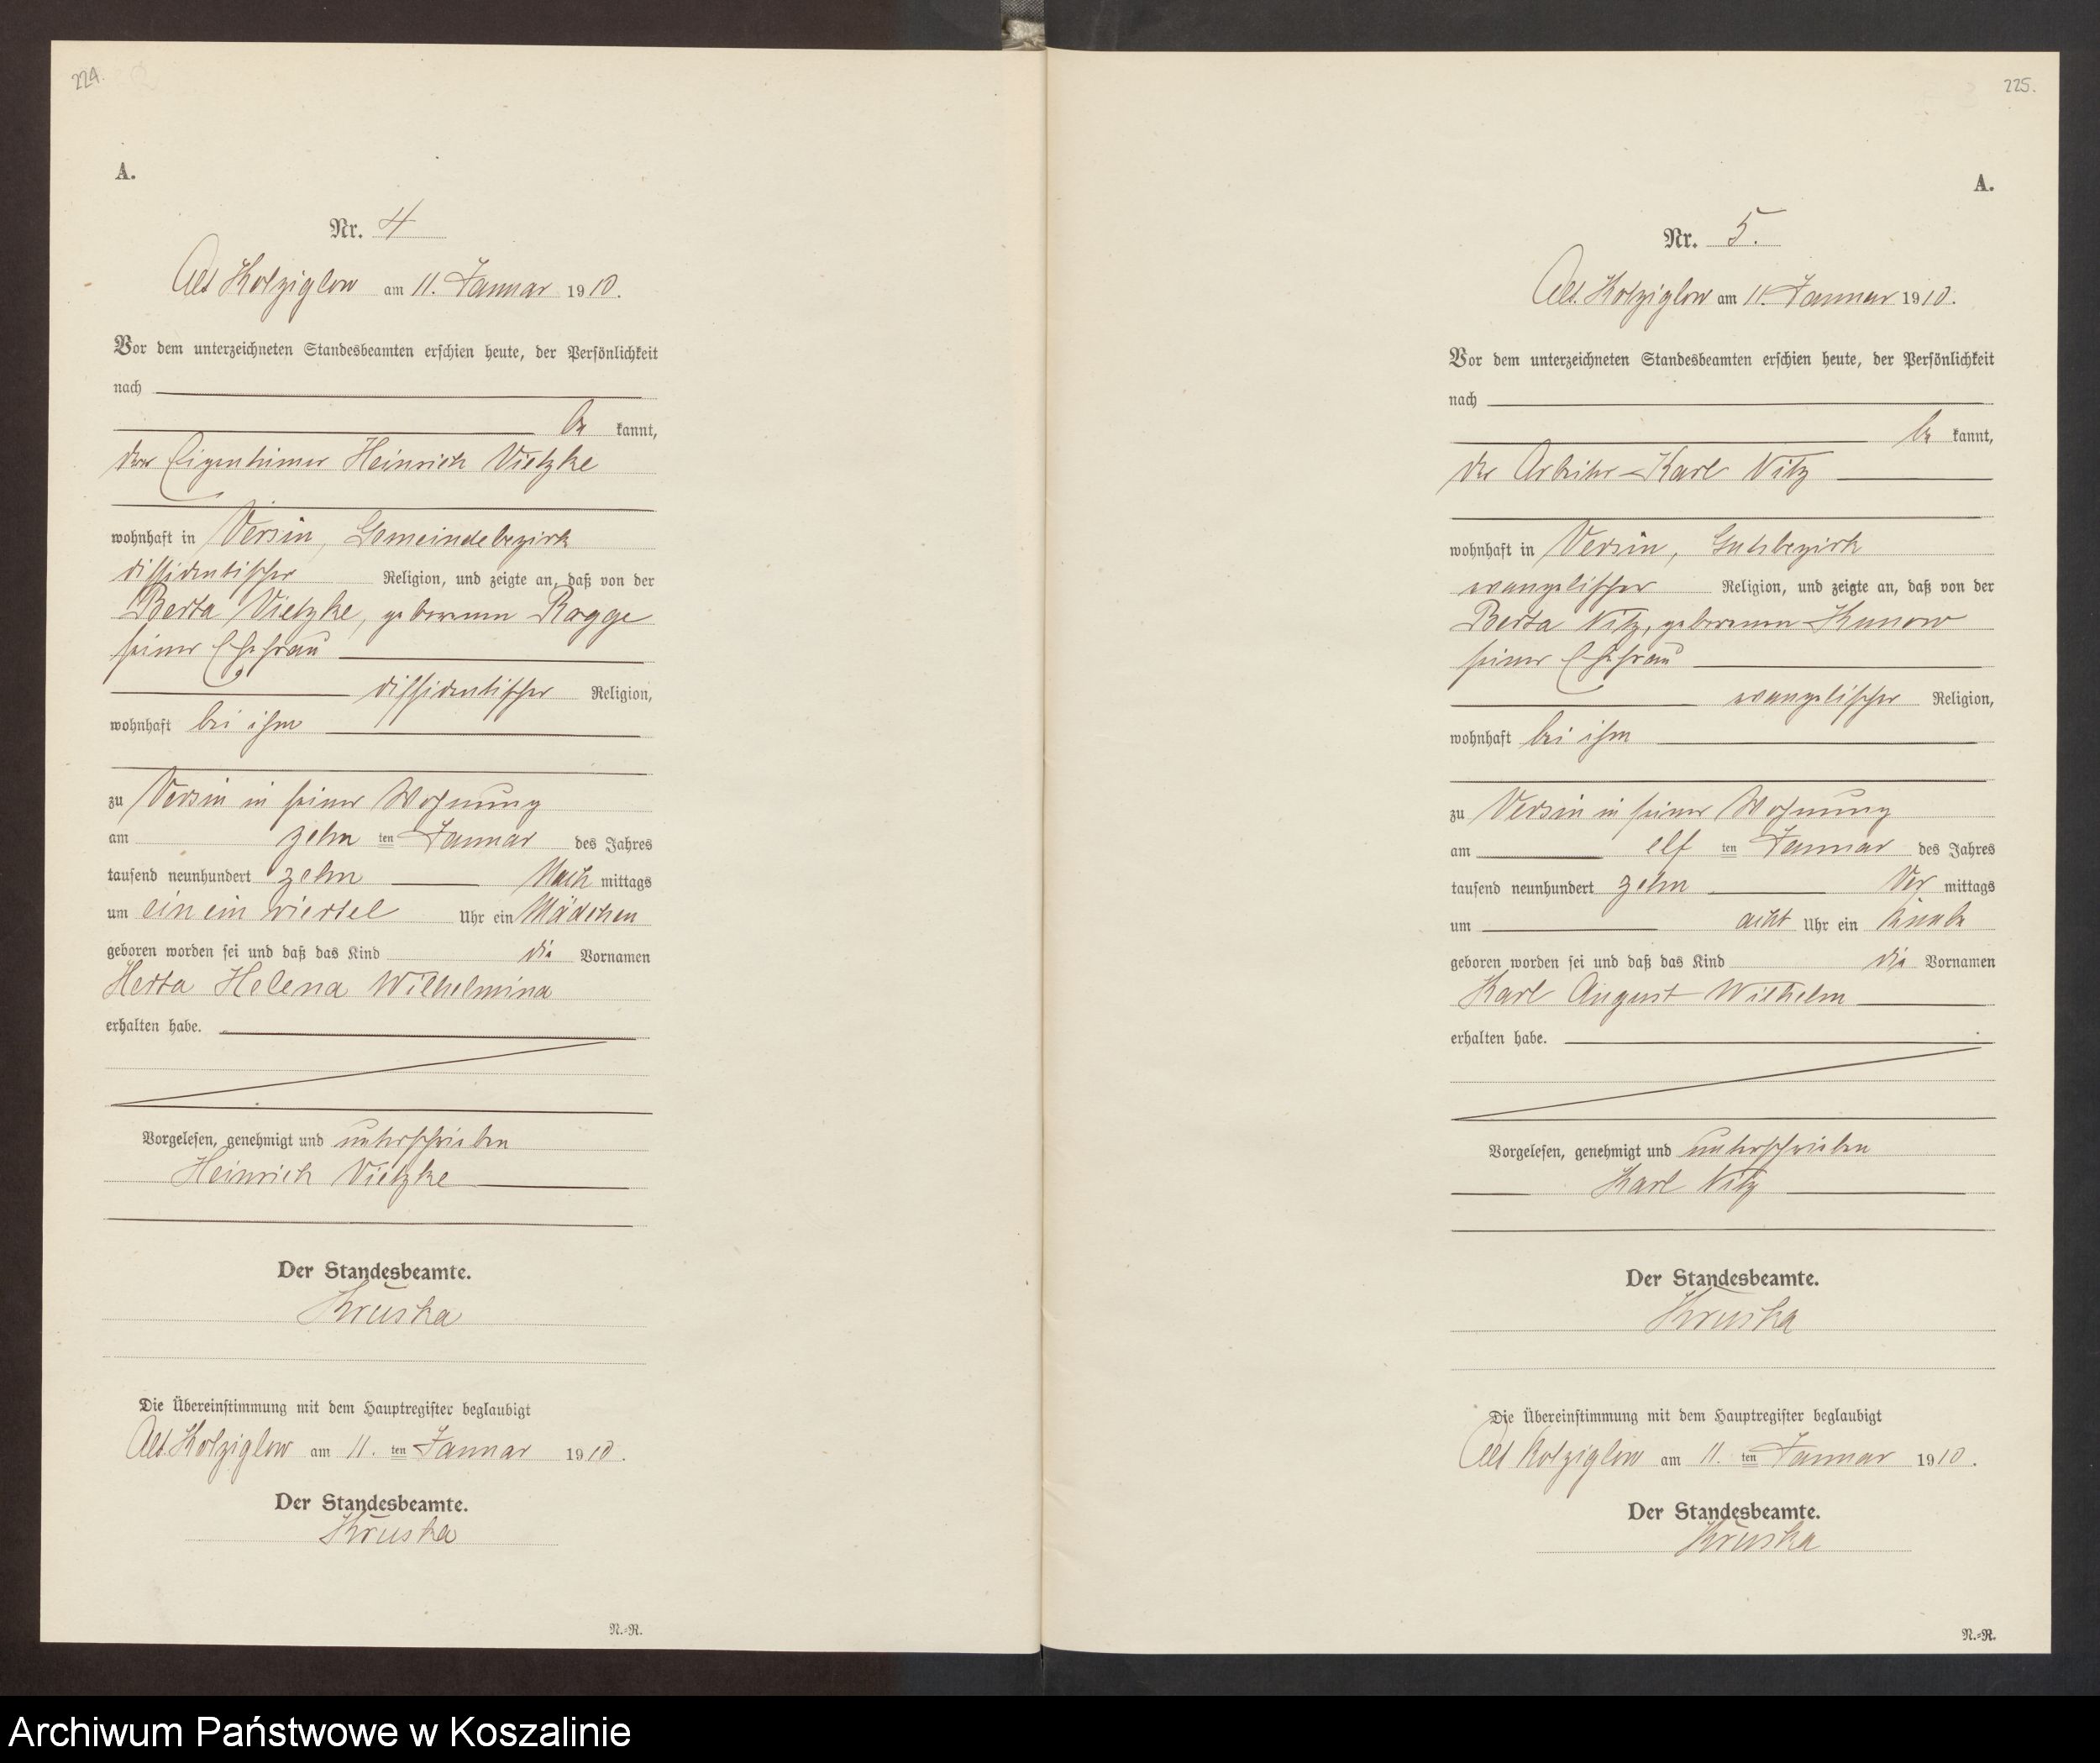 224.
A.
Nr. 4
Alt Kolziglow am 11. Januar 1910.
Vor dem unterzeichneten Standesbeamten erschien heute, der Persönlichkeit
nach
be kannt,
der Eigentümer Heinrich Vietzke
wohnhaft in Versin, Gemeindebezirk
dissidentischer Religion, und zeigte an, daß von der
Berta Vietzke, geborenen Ragge
seiner Ehefrau
dissidentischer Religion,
wohnhaft bei ihm
zu Versin in seiner Wohnung
am zehn ten Januar des Jahres
tausend neunhundert zehn Nach mittags
um ein ein viertel Uhr ein Mädchen
geboren worden sei und daß das Kind die Vornamen
Herta Helena Wilhelmina
erhalten habe.
Vorgelesen, genehmigt und unterschrieben
Heinrich Vietzke
Der Standesbeamte.
Kruska
Die Übereinstimmung mit dem Hauptregister beglaubigt
Alt. Kolziglow am 11. ten Januar 1910.
Der Standesbeamte.
Kruska
N.-R.
225.
A.
Nr. 5.
Alt. Kolziglow am 11. Januar 1910.
Vor dem unterzeichneten Standesbeamten erschien heute, der Persönlichkeit
nach
be kannt,
der Arbeiter Karl Nitz
wohnhaft in Versin, Gutsbezirk
evangelischer Religion, und zeigte an, daß von der
Berta Nitz, geborenen Kunow
seiner Ehefrau
evangelischer Religion,
wohnhaft bei ihm
zu Versin in seiner Wohnung
am elf ten Januar des Jahres
tausend neunhundert zehn Vor mittags
um acht Uhr ein Knabe
geboren worden sei und daß das Kind die Vornamen
Karl August Wilhelm
erhalten habe.
Vorgelesen, genehmigt und unterschrieben
Karl Nitz
Der Standesbeamte.
Kruska
Die Übereinstimmung mit dem Hauptregister beglaubigt
Alt Kolziglow am 11. ten Januar 1910.
Der Standesbeamte.
Kruska
N.-R.
Archiwum Państwowe w Koszalinie